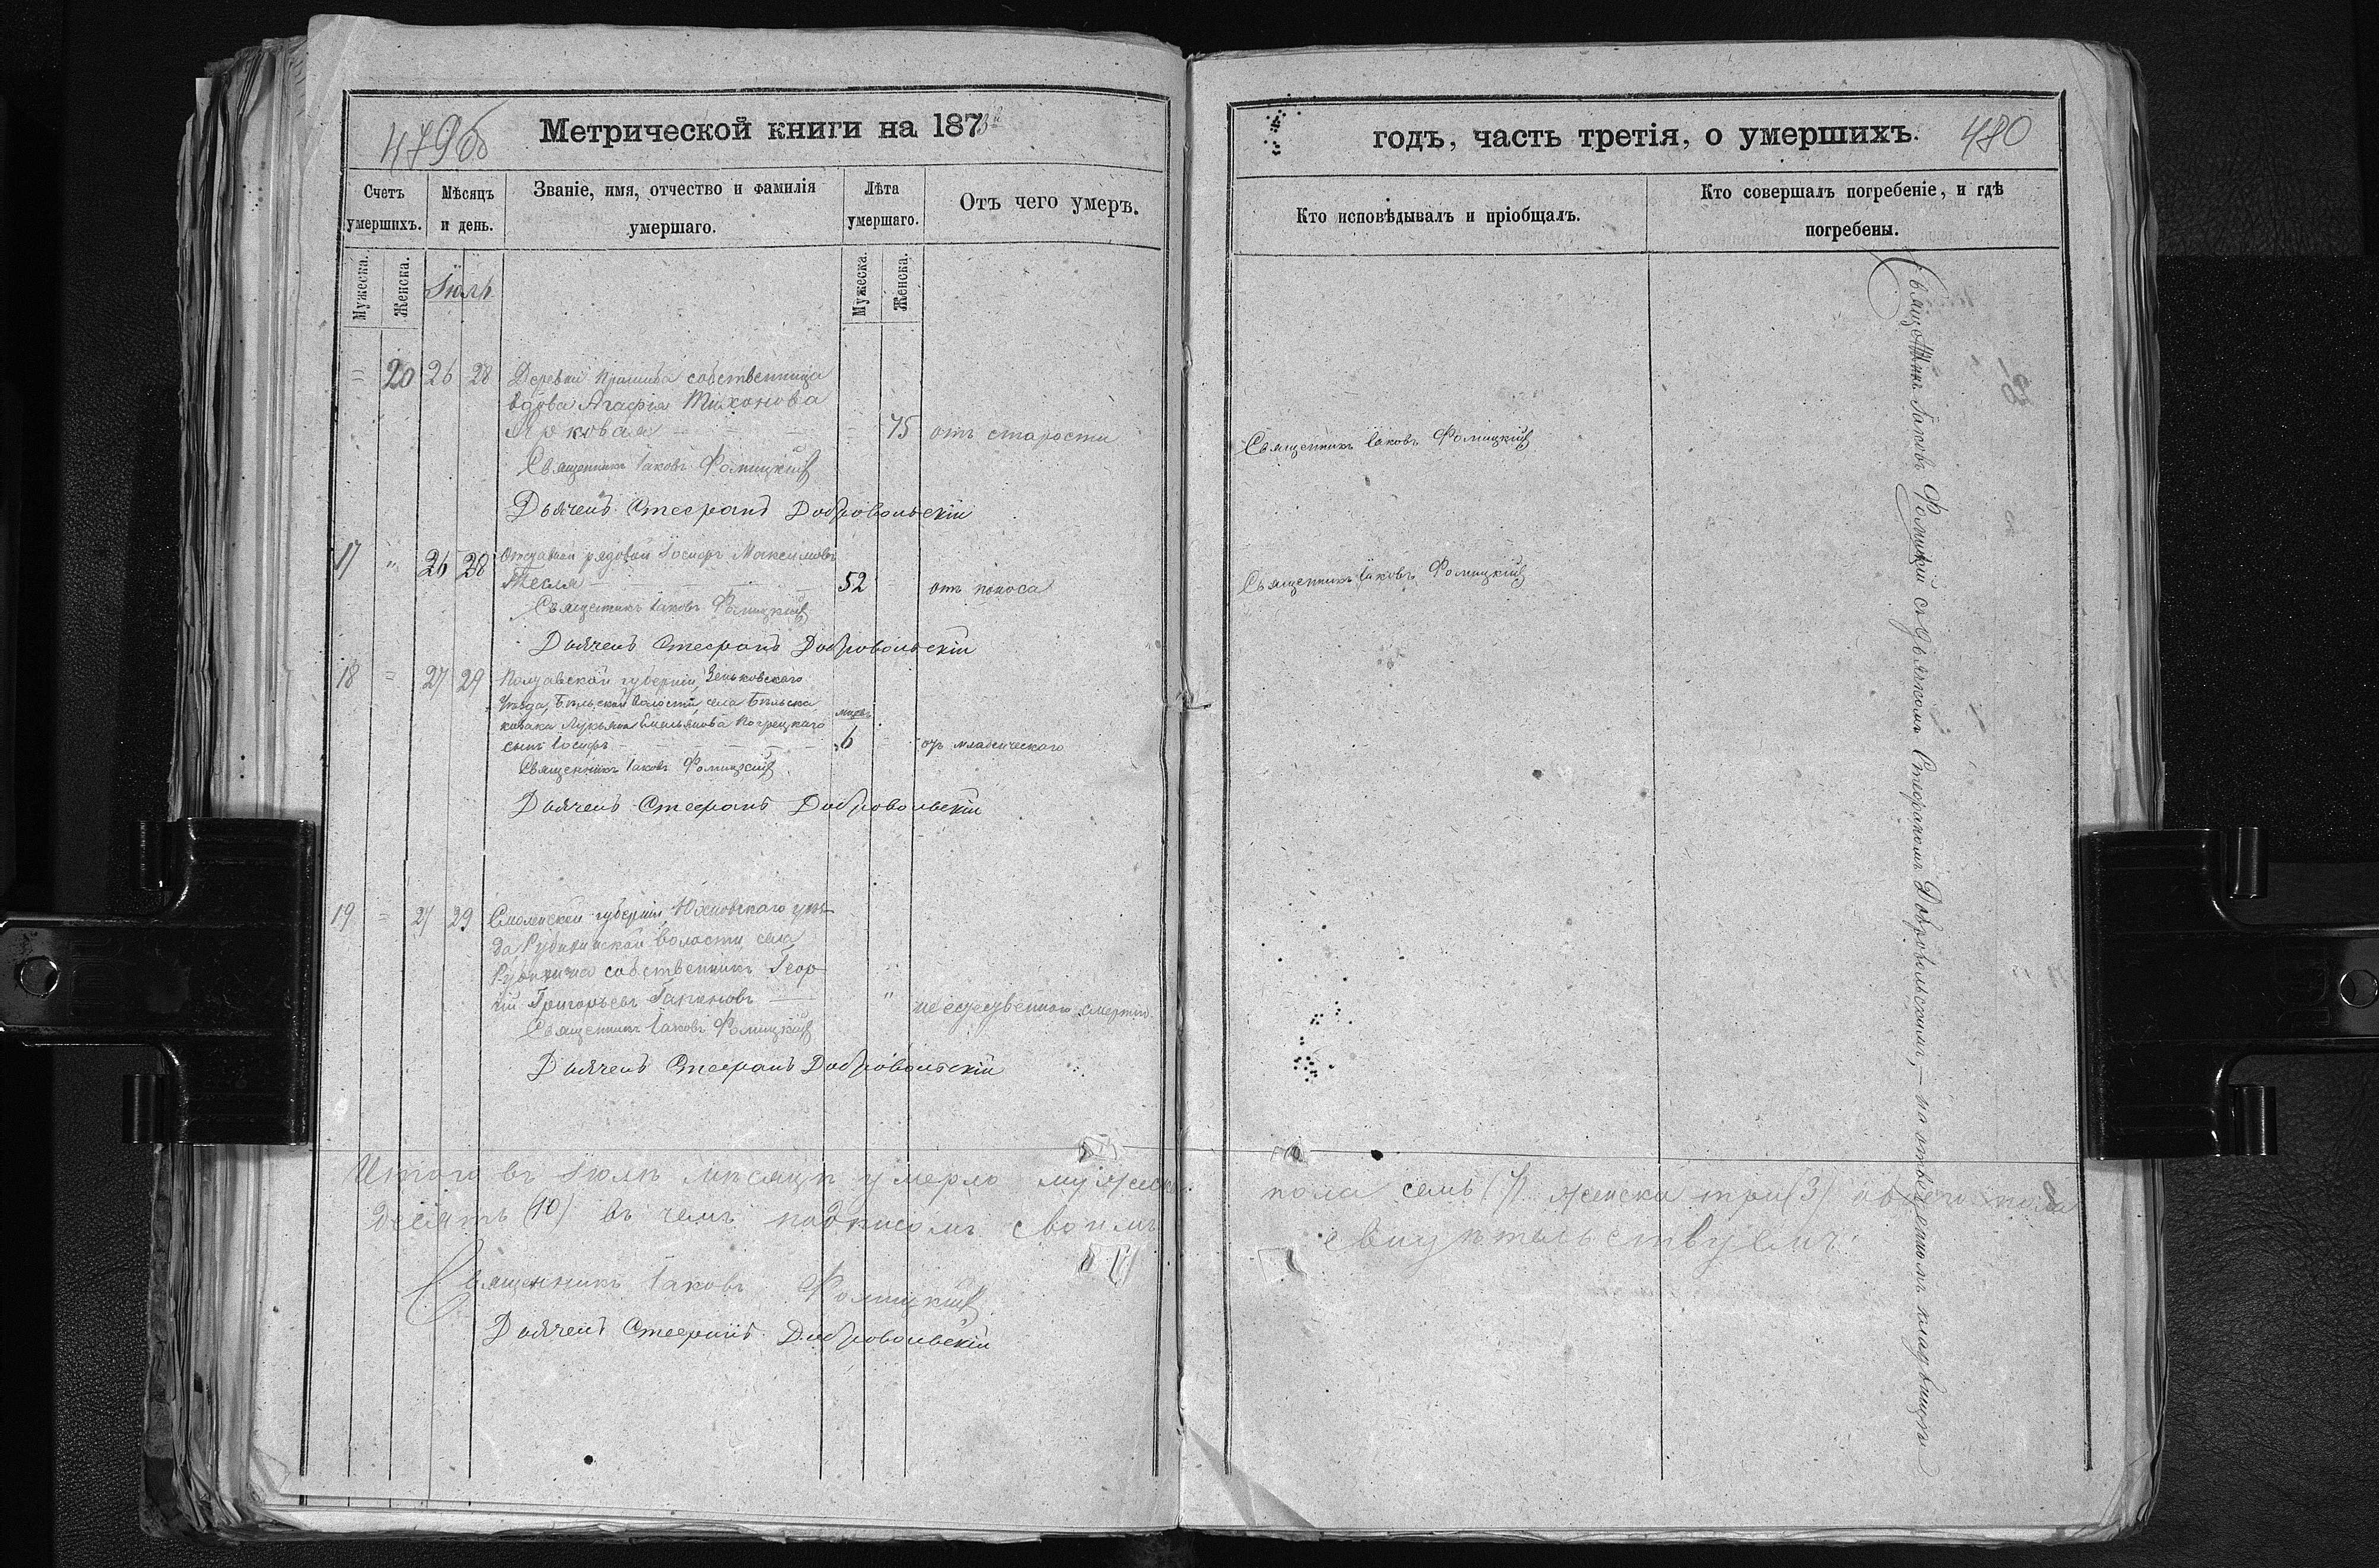 479об
Метрической книги на 1873й
годъ, часть третія, о умершихъ.
480
Счетъ умершихъ.
Мѣсяцъ и день.
Званіе, имя, отчество и фамилія умершаго.
Лѣта умершаго.
Отъ чего умеръ.
Кто исповѣдывалъ и пріобщалъ.
Кто совершалъ погребеніе, и гдѣ погребены.
Мужеска.
Женска.
Іюль
Мужеска.
Женска.
" 20 26 28 Деревни собственница
вдова Агафія Тихонова
75 отъ старости
Священникъ Іаковъ Фомицкій
Священникъ Іаковъ Фомицкій
Дьячекъ Стефанъ Добровольскій
17 " 26 28 Отставной рядовой Іосифъ Максимовъ
Тесля 52 отъ поноса
Священникъ Іаковъ Фомицкій
Священникъ Іаковъ Фомицкій
Дьячекъ Стефанъ Добровольскій
18 = 27 29 Полтавской губерніи, Зеньковскаго
уѣзда, Бѣльской волости, села Бѣльска
козака Лукьяна Емельянова мѣсяц.
сынъ Іосифъ 6 отъ младенческаго
Священникъ Іаковъ Фомицкій
Дьячекъ Стефанъ Добровольскій
19 = 27 29 Смоленской губерніи, Юхновскаго уѣз-
да, волости, села
собственникъ Геор-
гій Григорьевъ Гапоновъ " неестественною смертію
Священникъ Іаковъ Фомицкій
Дьячекъ Стефанъ Добровольскій
Итого въ Іюлѣ мѣсяцѣ умерло мужеска пола семь (7) женска три (3) обоего пола
десять (10) въ чемъ подписомъ своимъ свидѣтельствуемъ.
Священникъ Іаковъ Фомицкій
Дьячекъ Стефанъ Добровольскій
Священникъ Іаковъ Фомицкій съ дьячкомъ Стефаномъ Добровольскимъ, – на отведенномъ кладбищѣ